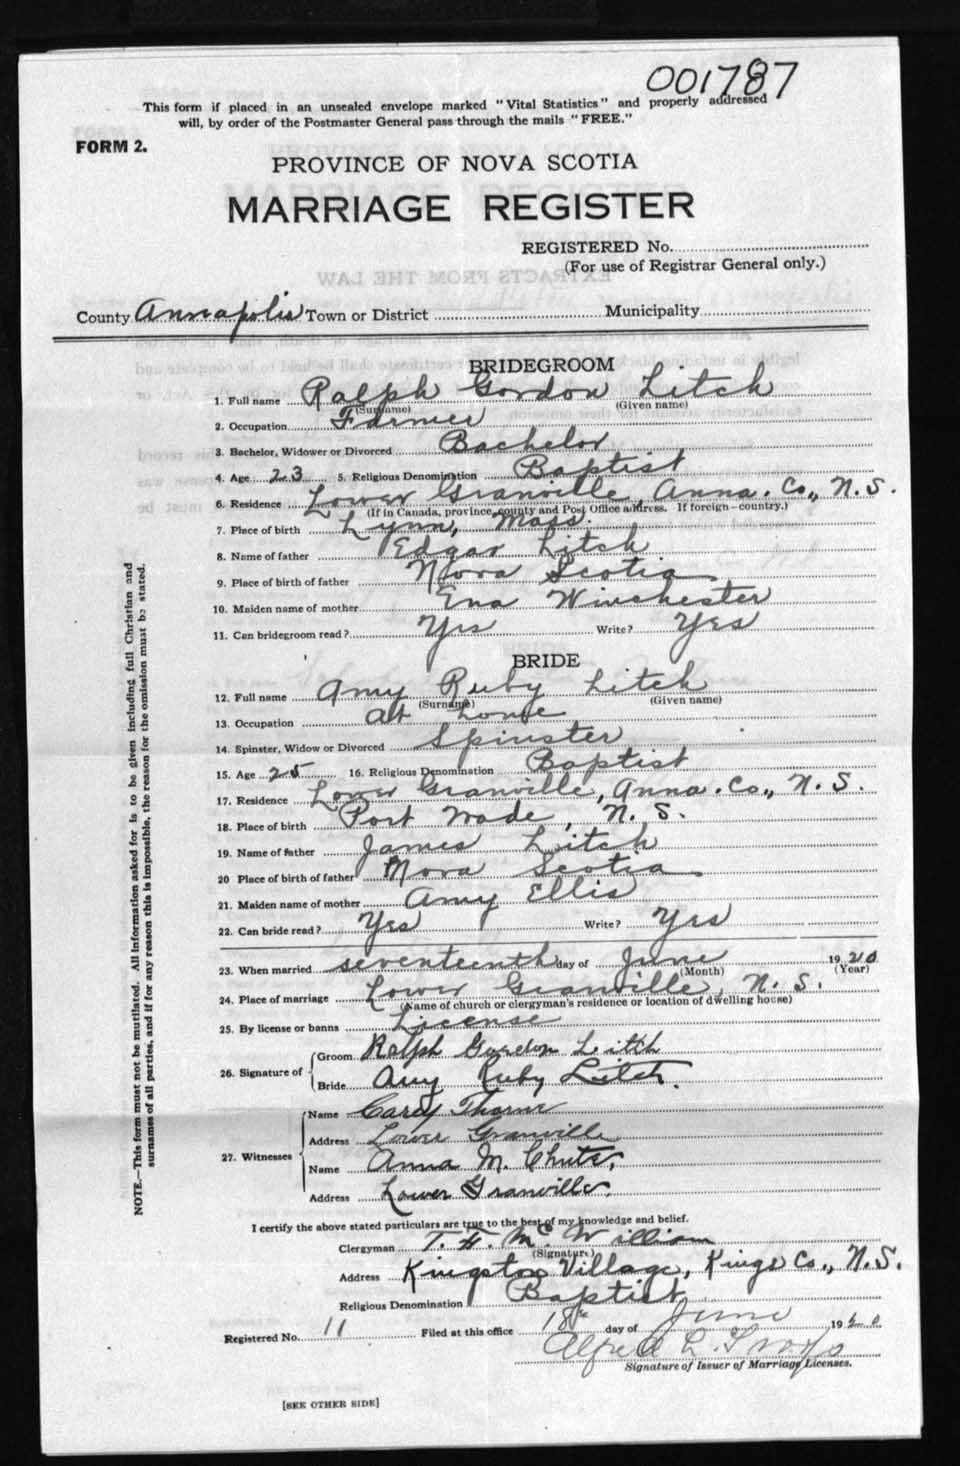 001787
This form if placed in an unsealed envelope marked "Vital Statistics" and properly addressed
will, by order of the Postmaster General pass through the mails "FREE."
FORM 2.
PROVINCE OF NOVA SCOTIA
MARRIAGE REGISTER
REGISTERED No.
(For use of Registrar General only.)
County Annapolis Town or District Municipality
BRIDEGROOM
1. Full name Ralph Gordon Litch
(Surname) (Given name)
2. Occupation Farmer
3. Bachelor, Widower or Divorced Bachelor
4. Age 23 5. Religious Denomination Baptist
6. Residence Lower Granville, Anna. Co., N.S.
(If in Canada, province, county and Post Office address. If foreign—country.)
7. Place of birth Lynn, Mass.
8. Name of father Edgar Litch
9. Place of birth of father Nova Scotia
10. Maiden name of mother Ena Winchester
11. Can bridegroom read? Yes Write? Yes
BRIDE
12. Full name Amy Ruby Litch
(Surname) (Given name)
13. Occupation at home
14. Spinster, Widow or Divorced Spinster
15. Age 25 16. Religious Denomination Baptist
17. Residence Lower Granville, Anna. Co., N.S.
18. Place of birth Port Wade, N.S.
19. Name of father James Litch
20 Place of birth of father Nova Scotia
21. Maiden name of mother Amy Ellis
22. Can bride read? Yes Write? Yes
23. When married seventeenth day of June 1920
(Month) (Year)
24. Place of marriage Lower Granville, N.S.
(Name of church or clergyman's residence or location of dwelling house)
25. By license or banns License
26. Signature of Groom Ralph Gordon Litch
Bride Amy Ruby Litch.
27. Witnesses Name Carey Thorne
Address Lower Granville
Name Anna M. Chute,
Address Lower Granville.
I certify the above stated particulars are true to the best of my knowledge and belief.
Clergyman T. H. McWilliam
(Signature)
Address Kingston Village, Kings Co., N.S.
Religious Denomination Baptist
Registered No. 11 Filed at this office 18th day of June 1920
Alfred L.
Signature of Issuer of Marriage Licenses.
[SEE OTHER SIDE]
NOTE.—This form must not be mutilated. All information asked for is to be given including full Christian and
surnames of all parties, and if for any reason this is impossible, the reason for the omission must be stated.